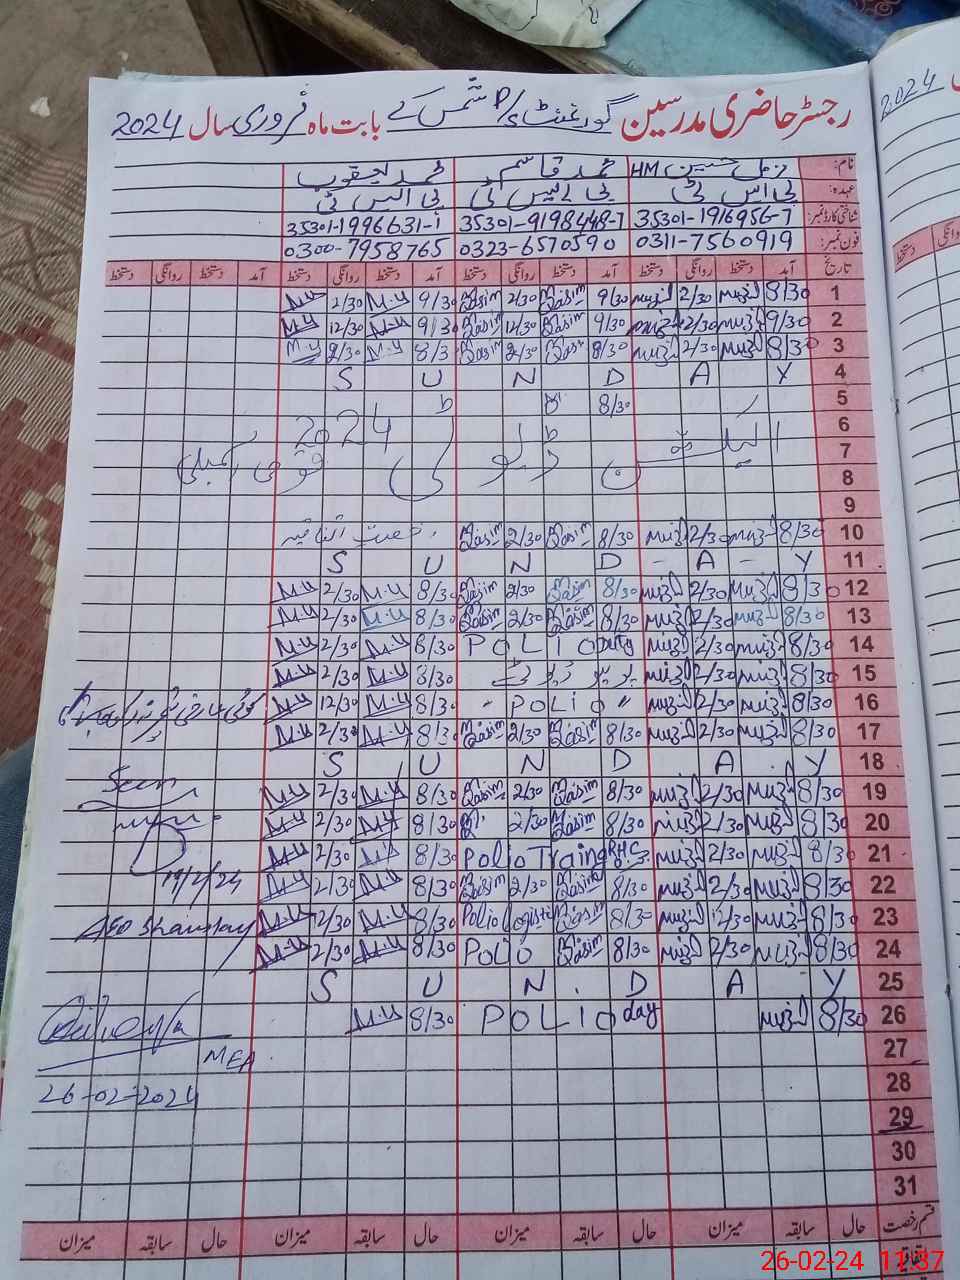 رجسٹر حاضری مدرسین گورنمنٹ P/S شمس کے بابت ماہ فروری سال 2024
2024
نام: مزمل حسین HM محمد قاسم محمد یعقوب
عہدہ: پی ایس ٹی پی ایس ٹی پی ایس ٹی
شناختی کارڈ نمبر: 35301-1916956-7 35301-9198448-7 35301-1996631-1
فون نمبر: 0311-7560919 0323-6570590 0300-7958765
تاریخ آمد دستخط روانگی دستخط آمد دستخط روانگی دستخط آمد دستخط روانگی دستخط آمد دستخط روانگی دستخط
1 8/30 2/30 9/30 Qasim 2/30 Qasim 9/30 M.Y 2/30 M.Y
2 9/30 12/30 9/30 Qasim 12/30 Qasim 9/30 M.Y 12/30 M.Y
3 8/30 2/30 8/30 Qasim 2/30 Qasim 8/3 M.Y 2/30 M.Y
4 S U N D A Y
5 8/30
6 2024
7 الیکشن ڈیوٹی قومی اسمبلی
8
9
10 8/30 2/30 8/30 Qasim 2/30 Qasim رخصت اتفاقیہ
11 S U N D - A - Y
12 8/30 2/30 8/30 Qasim 2/30 Qasim 8/30 M.Y 2/30 M.Y
13 8/30 2/30 8/30 Qasim 2/30 Qasim 8/30 M.Y 2/30 M.Y
14 8/30 2/30 POLIO Duty 8/30 M.Y 2/30 M.Y
15 8/30 2/30 8/30 M.Y 2/30 M.Y
16 8/30 2/30 " POLIO " 8/30 M.Y 12/30 M.Y
17 8/30 2/30 8/30 Qasim 2/30 Qasim 8/30 M.Y 2/30 M.Y
18 S U N D A Y
19 8/30 2/30 8/30 Qasim 2/30 Qasim 8/30 M.Y 2/30 M.Y
Seen
20 8/30 2/30 8/30 Qasim 2/30 8/30 M.Y 2/30 M.Y
21 8/30 2/30 Polio Traing RHC 8/30 M.Y 2/30 M.Y
22 8/30 2/30 8/30 Qasim 2/30 Qasim 8/30 M.Y 2/30 M.Y
19/2/24
23 8/30 12/30 8/30 Qasim Polio 8/30 M.Y 2/30 M.Y
AEO
24 8/30 2/30 8/30 Qasim POLIO 8/30 M.Y 2/30 M.Y
25 S U N . D A Y
26 8/30 POLIO day 8/30 M.Y
27
MEA
28
26-02-2024
29
30
31
قسم رخصت حال سابقہ میزان حال سابقہ میزان حال سابقہ میزان حال سابقہ میزان
اتفاقیہ
26-02-24 11:37